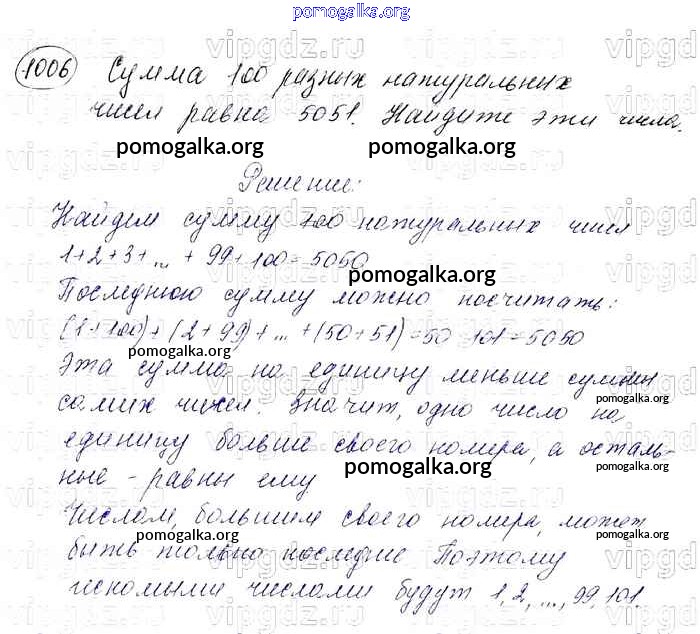 pomogalka.org
1006 Сумма 100 разных натуральных
чисел равна 5051. Найдите эти числа.
pomogalka.org pomogalka.org
Решение:
Найдем сумму 100 натуральных чисел
1+2+3+...+99+100=5050
pomogalka.org
Последнюю сумму можно посчитать:
(1+100)+(2+99)+...+(50+51)=50·101=5050
pomogalka.org
Эта сумма на единицу меньше суммы
самих чисел. Значит, одно число на
pomogalka.org
единицу больше своего номера, а осталь-
ные - равны ему
pomogalka.org pomogalka.org
Числом, большим своего номера, может
быть только последнее Поэтому
pomogalka.org pomogalka.org
искомыми числами будут 1, 2, ..., 99, 101.